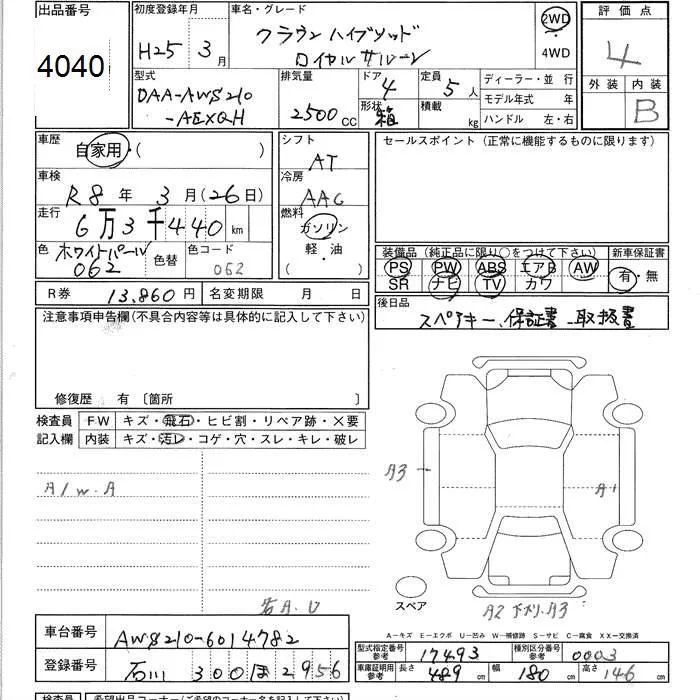 出品番号 初度登録年月 車名・グレード 評価点
4040 H25 年 3月 クラウン ハイブリッド 2WD 4
ロイヤルサルーン 4WD
外装 内装
型式 排気量 ドア 定員 ディーラー・並 行 B
DAA-AWS210 2500cc 4 5人 モデル年式 年
-AEXQH 形状 箱 積載 kg ハンドル 左・右
車歴 自家用・( ) シフト AT セールスポイント (正常に機能するものに限ります)
車検 R8年 3月(26日) 冷房 AAC
走行 6万3千440km 燃料 ガソリン
色 ホワイトパール 062 色替 色コード 062 軽・油 ( )
装備品 (純正品に限り○をつけて下さい) 新車保証書
PS PW ABS エアB AW 有・無
SR ナビ TV カワ
R券 13,860円 名変期限 月 日
後日品 スペアキー、保証書、取扱書
注意事項申告欄(不具合内容等は具体的に記入して下さい)
修復歴 有 〔箇所 〕
検査員 FW キズ・飛石・ヒビ割・リペア跡・×要
記入欄 内装 キズ・汚レ・コゲ・穴・スレ・キレ・破レ
A/W.A
A3
A1
若A.U
スペア
A2 下廻り.A3
A-キズ E-エクボ U-凹み W-補修跡 S-サビ C-腐食 XX-交換済
車台番号 AWS210-6014782
型式指定番号 参考 17493 種別区分番号 参考 0003
登録番号 石川 300 ほ 2956
車庫証明用 参考 長さ 489cm 幅 180cm 高さ 146cm
検査員 希望出品コーナー(ご希望のコーナー名を記入して下さい)